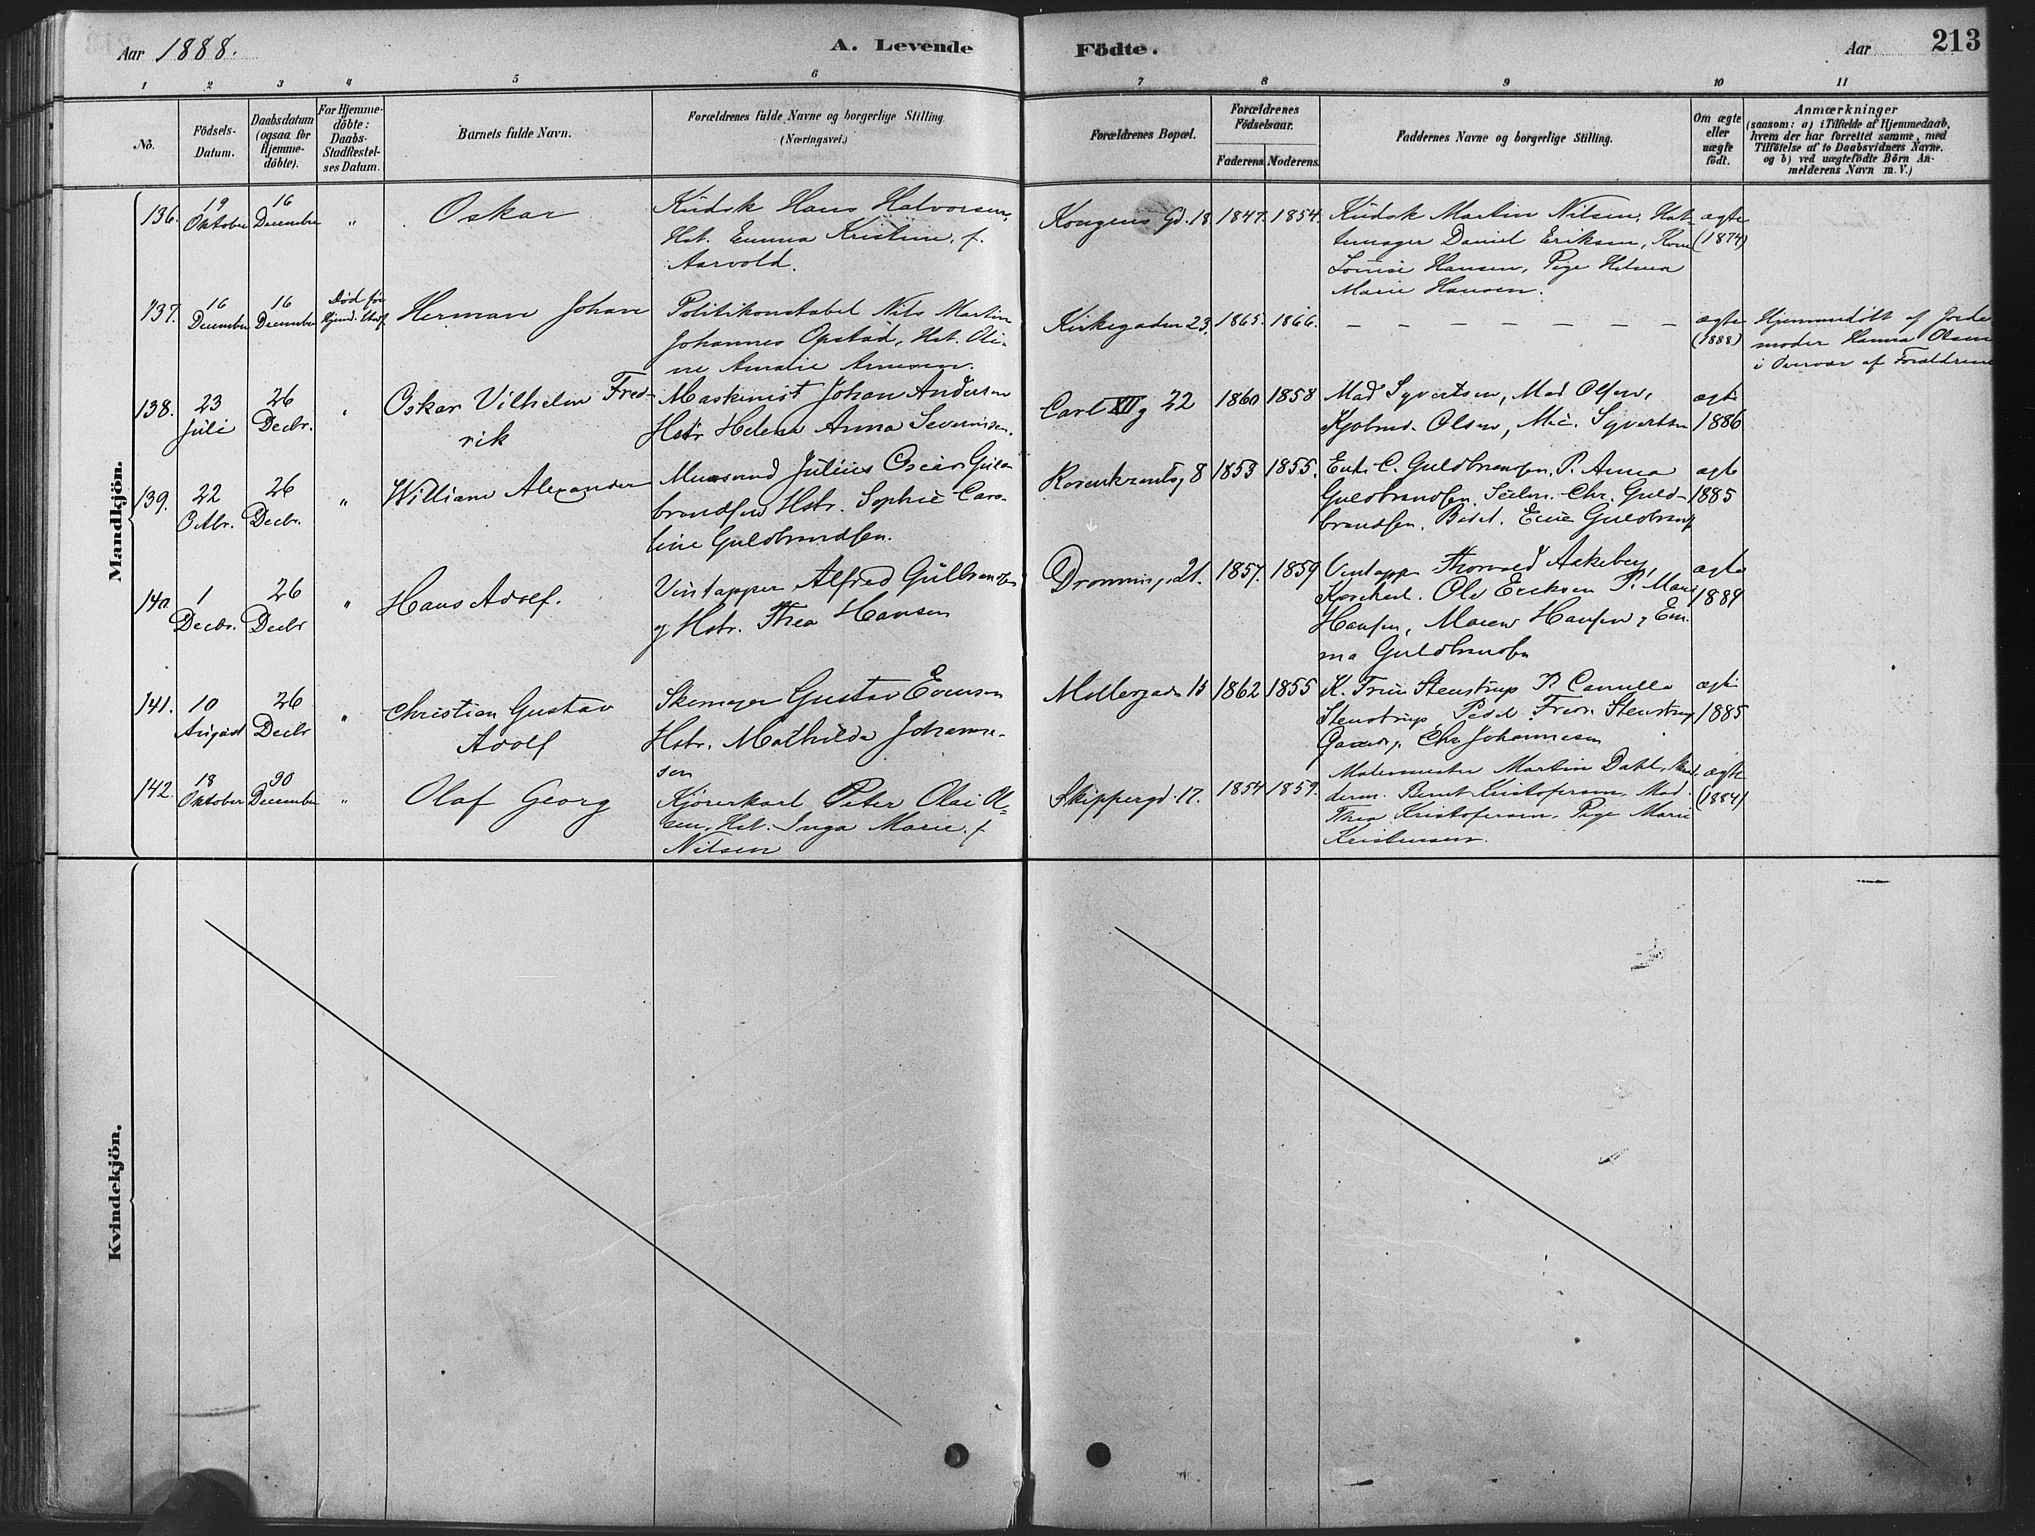 Aar 1888.
A. Levende
Födte.
Aar
213
1 2 3 4 5 6 7 8 9 10 11
No.
Födsels-
Datum.
Daabsdatum
(ogsaa for
Hjemme-
döbte).
For Hjemme-
döbte:
Daabs-
Stadfæstel-
ses Datum.
Barnets fulde Navn.
Forældrenes fulde Navne og borgerlige Stilling.
(Næringsvei.)
Forældrenes Bopæl.
Forældrenes
Födselsaar.
Faderens. Moderens.
Faddernes Navne og borgerlige Stilling.
Om ægte
eller
uægte
födt.
Anmærkninger
(saasom: a) i Tilfælde af Hjemmedaab,
hvem der har forrettet samme, med
Tilföielse af to Daabsvidners Navne.
og b) ved uægtefödte Börn An-
melderens Navn m. V.)
Mandkjön.
136. 19 Oktober
16 December
"
Oskar
Kudsk Hans Halvorsen,
Hst. Emma Kristine, f.
Aarvold.
Kongens Gd. 18 1847. 1854.
Kudsk Martin Nilsen, Hat-
temager Daniel Eriksen, Kone
Louise Hansen, Pige Helma
Marie Hansen.
ægte
(1874)
137. 16 December
16 December
Död før
Hjemd. Stadf.
Herman Johan
Politikonstabel Nils Martin
Johannes Opstad, Hst. Oli-
ne Amalie Arnesen.
Kirkegaden 23. 1865. 1866.
— — — — — — —
ægte
(1888)
Hjemmedøbt af Jorde-
moder Hanna Olsen
i Overvær af Forældrene
138. 23 Juli
26 Decbr.
"
Oskar Vilhelm Fred-
rik
Maskinist Johan Andersen
Hstr Helene Anna Severinsen.
Carl XII g 22 1860 1858
Mad Syvertsen, Mad Olsen,
Olsen, Syvertsen
ægte
1886
139. 22 Octbr.
26 Decbr.
"
William Alexander
Julius Oscar Guld-
brandsen Hstr. Sophie Caro-
line Guldbrandsen.
Rosenkrantsg 8 1853 1855.
C. Guldbrandsen. P. Anna
Guldbrandsen. Chr. Guld-
brandsen. Guldbrands
ægte
1885
140 1 Decbr.
26 Decbr
"
Hans Adolf.
Vintapper Alfred Gulbrandsen
og Hstr. Thea Hansen
Dronning. 21. 1857. 1859
Vintapp Thorvald Aakeberg,
Ole Ericksen P. Marie
Hansen, Maren Hansen, Em-
ma Guldbrandsen
ægte
1884
141. 10 August
26 Decbr
"
Christian Gustav
Adolf
Skomager Gustav Evensen
Hstr. Mathilda Johanne-
sen
Møllergade 15 1862 1855
K. Trine Stenstrup P. Camilla
Stenstrup, Stenstrup
Chr Johannesen
ægte
1885
142. 18 Oktober
30 December
"
Olaf Georg
Kjørerkarl Peter Olai Ol-
sen, Hst. Inga Marie, f.
Nilsen
Skippergd. 17. 1854 1859.
Malermester Martin Dahl,
Bernt Kristofersen, Mad.
Thea Kristofersen, Pige Marie
Kristensen.
ægte
(1884)
Kvindekjön.